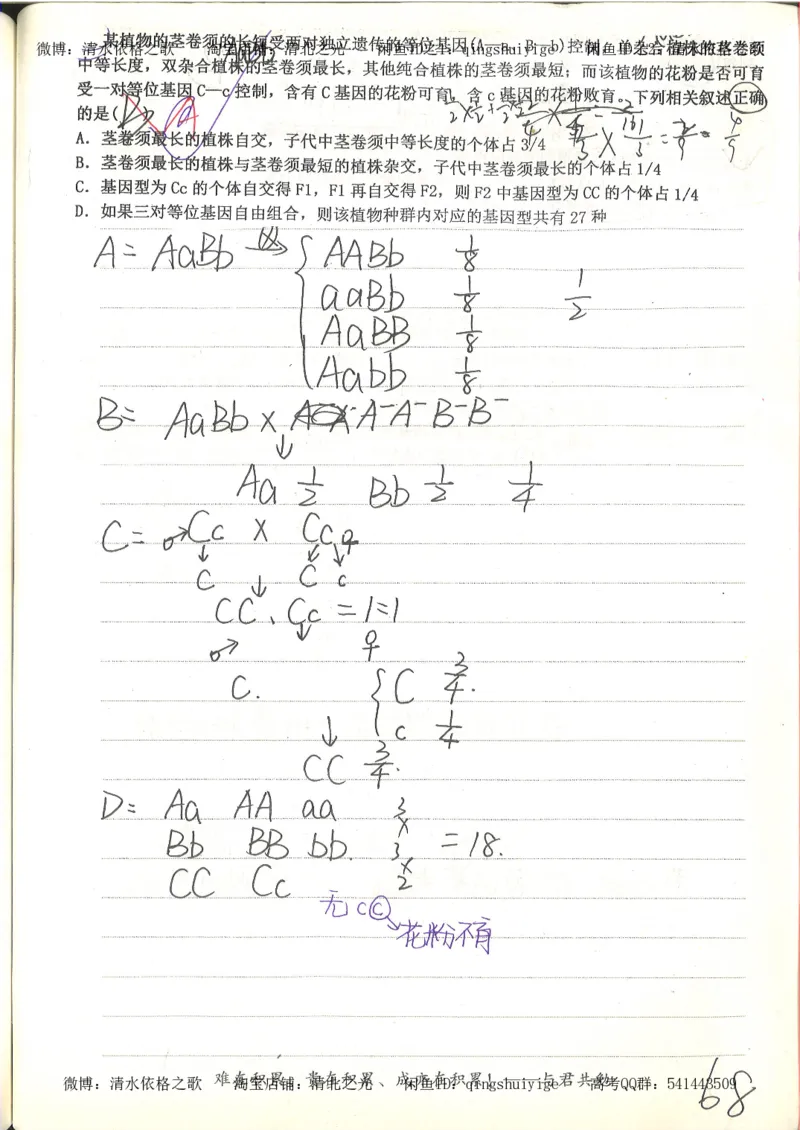 某植物的茎卷须的长短受两对独立遗传的等位基因(A—a、B—b)控制，单杂合植株的茎卷须
微博：清水依格之歌 淘宝店铺：清北之光 闲鱼ID：qingshuiyige
中等长度，双杂合植株的茎卷须最长，其他纯合植株的茎卷须最短；而该植物的花粉是否可育
受一对等位基因C—c控制，含有C基因的花粉可育、含c基因的花粉败育。下列相关叙述正确
的是( )
A．茎卷须最长的植株自交，子代中茎卷须中等长度的个体占3/4
B．茎卷须最长的植株与茎卷须最短的植株杂交，子代中茎卷须最长的个体占1/4
C．基因型为Cc的个体自交得F1，F1再自交得F2，则F2中基因型为CC的个体占1/4
D．如果三对等位基因自由组合，则该植物种群内对应的基因型共有27种
A= AaBb ⊗→ { AABb 1/8
aaBb 1/8 1/2
AaBB 1/8
Aabb 1/8
B= AaBb × A⁻A⁻B⁻B⁻
↓
Aa 1/2 Bb 1/2 1/4
C= ♂Cc × Cc♀
C ↓ C c
CC、Cc = 1:1
♂ ♀
C. { C 3/4.
↓ c 1/4
CC 3/4.
D= Aa AA aa 3
×
Bb BB bb. 3 = 18.
×
CC Cc 2
无cⓒ
花粉不育
微博：清水依格之歌 淘宝店铺：清北之光 闲鱼ID：qingshuiyige 高考QQ群：541443509
68